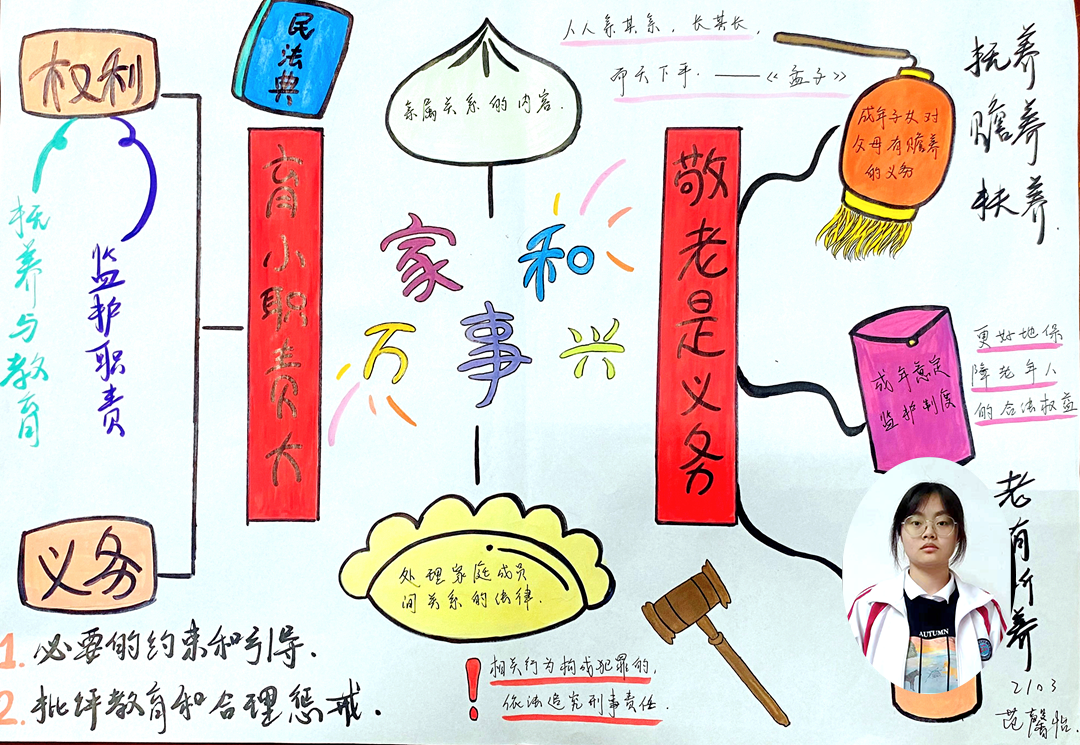 权利
民法典
亲属关系的内容.
人人亲其亲，长其长，
而天下平.——《孟子》
成年子女对
父母有赡养
的义务
抚养
赡养
扶养
抚养与教育
监护职责
育小职责大
家和
万事兴
敬老是义务
成年意定
监护制度
更好地保
障老年人
的合法权益
义务
处理家庭成员
间关系的法律.
老有所养
AUTUMN
1. 必要的约束和引导.
2. 批评教育和合理惩戒.
！相关行为构成犯罪的,
依法追究刑事责任.
2103
范馨怡.